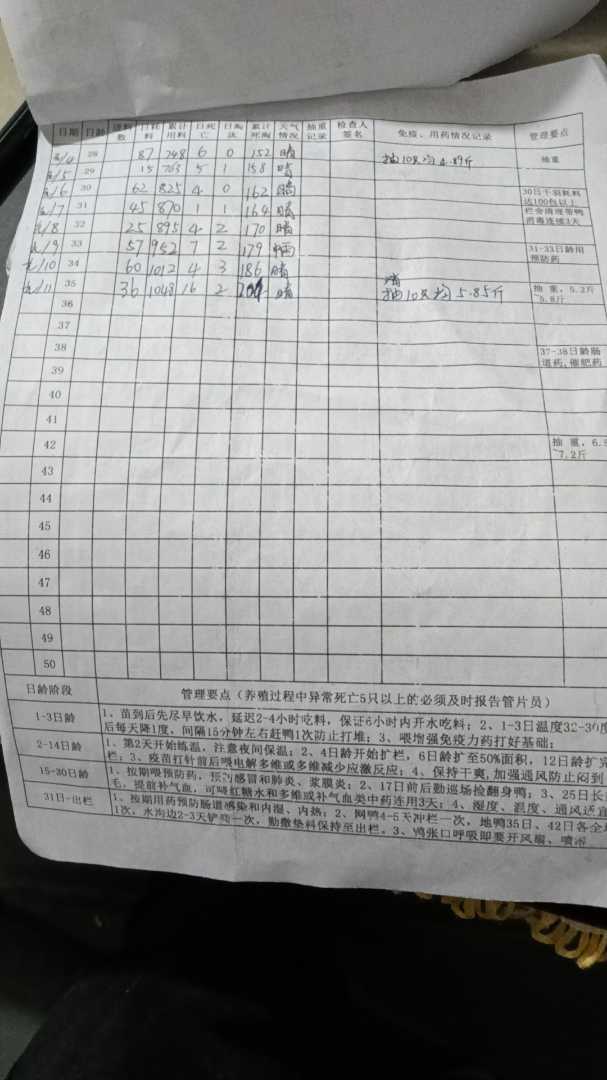 日期 日龄 进料数 日耗料 累计用料 日死亡 日淘汰 累计死淘 天气情况 抽重记录 检查人签名 免疫、用药情况记录 管理要点
/4 28 87 748 6 0 152 晴 抽10只均4.89斤 抽重
/5 29 15 763 5 1 158 晴
/6 30 62 825 4 0 162 30日平羽耗料达100包以上
/7 31 45 870 1 1 164 晴 栏舍清理带鸭消毒连续3天
/8 32 25 895 4 2 170 晴
/9 33 57 952 7 2 179 31-33日龄用预防药
/10 34 60 1012 4 3 186 晴
/11 35 36 1048 16 2 204 晴 抽10只均5.85斤 抽重，5.2斤-5.8斤
36
37
38 37-38日龄肠道药,催肥药
39
40
41
42 抽重，6. 7.2斤
43
44
45
46
47
48
49
50
日龄阶段 管理要点（养殖过程中异常死亡5只以上的必须及时报告管片员）
1-3日龄 1、苗到后先尽早饮水，延迟2-4小时吃料，保证6小时内开水吃料；2、1-3日温度32-30度
后每天降1度，间隔15分钟左右赶鸭1次防止打堆；3、喂增强免疫力药打好基础；
2-14日龄 1、第2天开始练温，注意夜间保温；2、4日龄开始扩栏，6日龄扩至50%面积，12日龄扩完
栏；3、疫苗打针前后喂电解多维或多维减少应激反应；4、保持干爽,加强通风防止闷到
15-30日龄 1、按期喂预防药，预防感冒和肺炎、浆膜炎；2、17日前后勤巡场捡翻身鸭；3、25日长
毛，提前补气血，可喂红糖水和多维或补气血类中药连用3天；4、湿度、温度、通风适宜
31日-出栏 1、按期用药预防肠道感染和内湿、内热；2、网鸭4-5天冲栏一次，地鸭35日、42日各全
1次，水沟边2-3天铲粪一次，勤撒垫料保持至出栏。3、鸭张口呼吸即要开风扇、喷淋